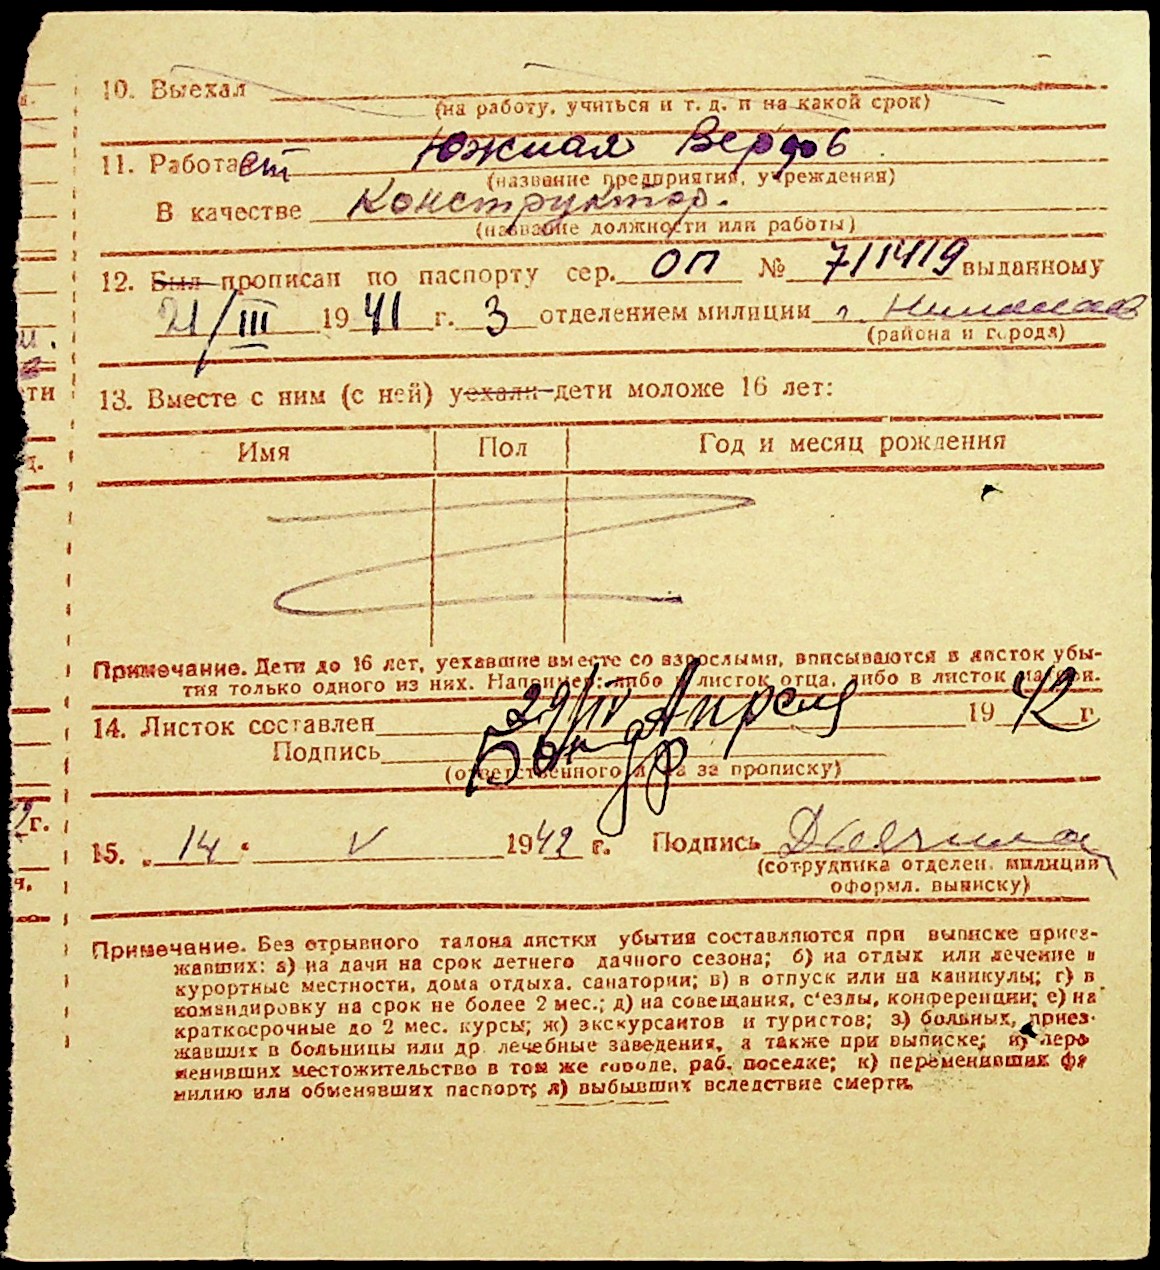 10. Выехал
(на работу, учиться и т. д. и на какой срок)
11. Работает Южная Верфь
(название предприятия, учреждения)
В качестве Конструктор.
(название должности или работы)
12. Был прописан по паспорту сер. ОП № 711419 выданному
21/III 1941 г. 3 отделением милиции г. Николаев
(района и города)
13. Вместе с ним (с ней) уехали дети моложе 16 лет:
Имя Пол Год и месяц рождения
Примечание. Дети до 16 лет, уехавшие вместе со взрослыми, вписываются в листок убы-
тия только одного из них. Например, либо в листок отца, либо в листок матери.
14. Листок составлен 29/IV Апреля 1942 г
Подпись
(ответственного лица за прописку)
15. „ 14 " V 1942 г. Подпись
(сотрудника отделен. милиции
оформл. выписку)
Примечание. Без отрывного талона листки убытия составляются при выписке приез-
жавших: а) на дачи на срок летнего дачного сезона; б) на отдых или лечение в
курортные местности, дома отдыха, санатории; в) в отпуск или на каникулы; г) в
командировку на срок не более 2 мес.; д) на совещания, с'езды, конференции; е) на
краткосрочные до 2 мес. курсы; ж) экскурсантов и туристов; з) больных, приез-
жавших в больницы или др. лечебные заведения, а также при выписке; и) пере
менивших местожительство в том же городе, раб. поселке; к) переменивших фа
милию или обменявших паспорт; л) выбывших вследствие смерти.
г.
ти